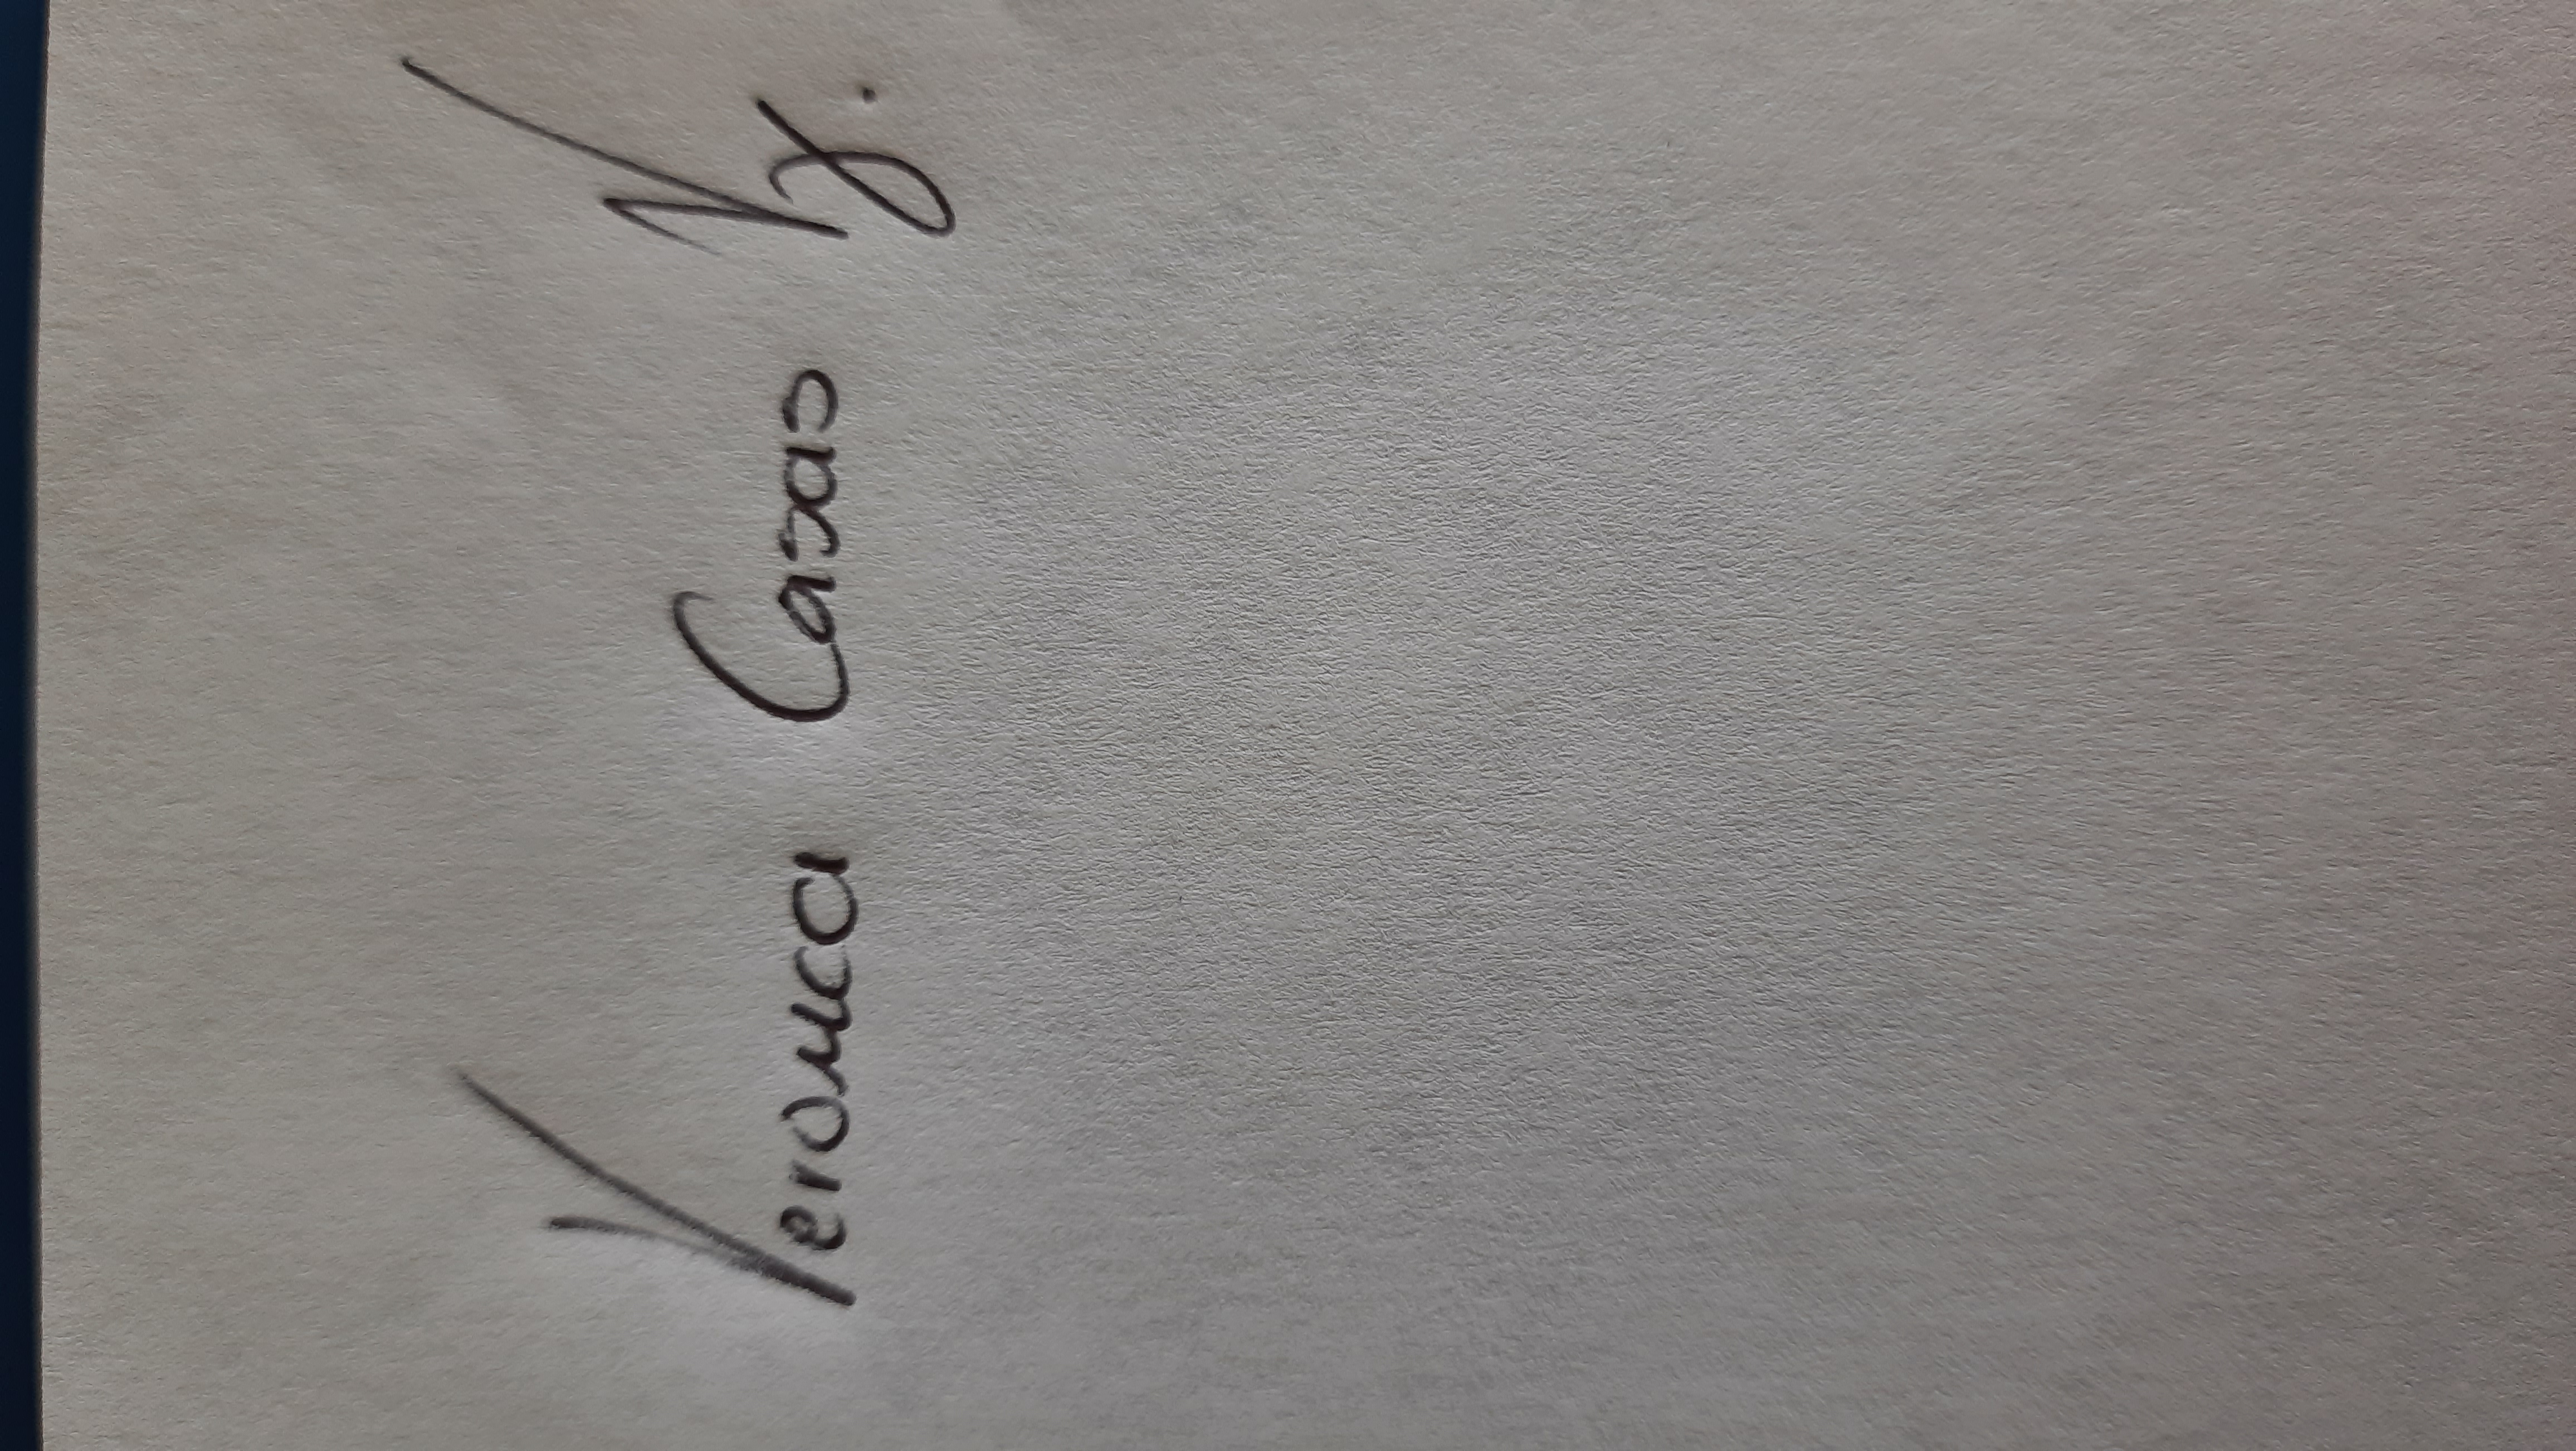 Veronica Casas Vz.